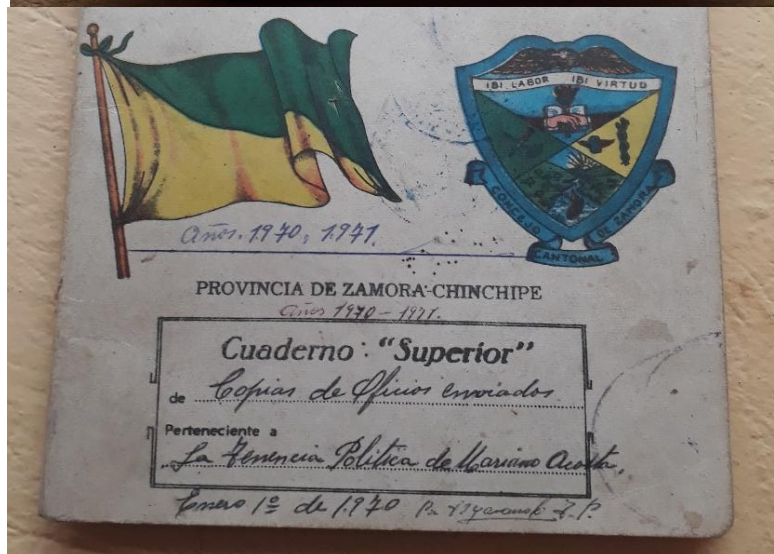 IBI LABOR IBI VIRTUD
CONCEJO CANTONAL DE ZAMORA
Años. 1970, 1971.
PROVINCIA DE ZAMORA-CHINCHIPE
Años 1970 - 1971.
Cuaderno : "Superior"
de Copias de Oficios enviados
Perteneciente a
La Tenencia Política de Mariano Acosta,
Enero 1º de 1.970